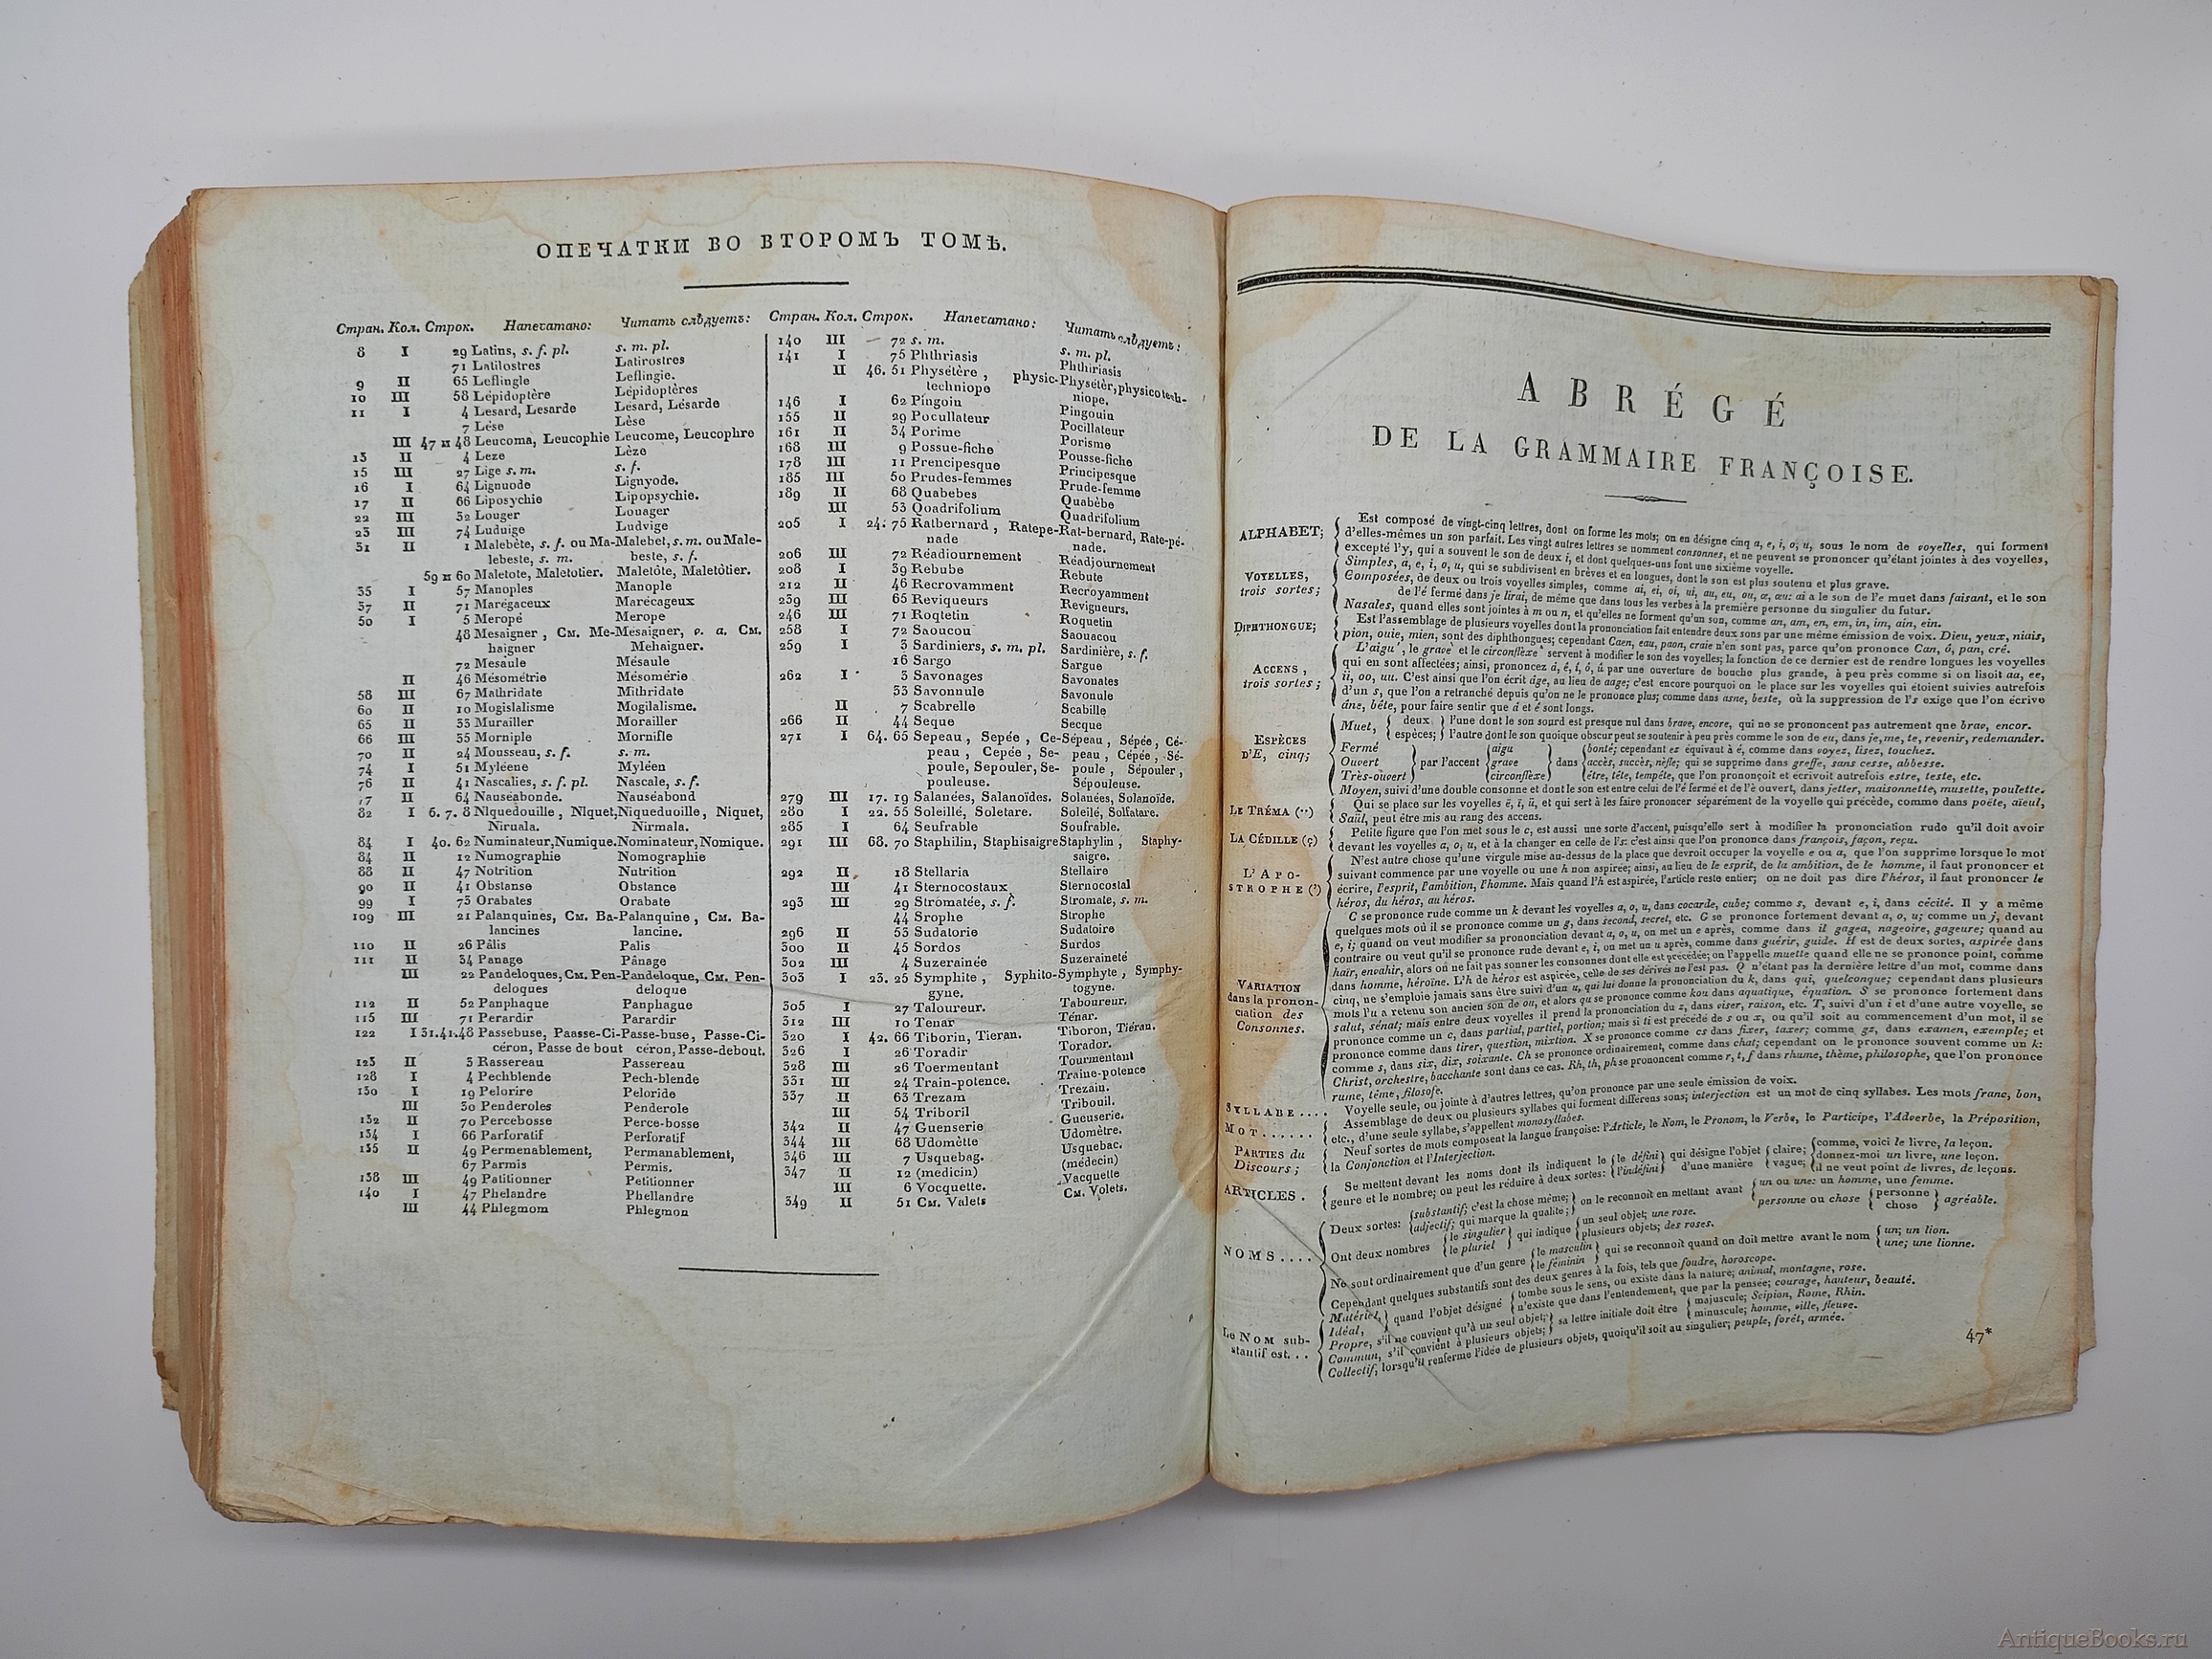 ОПЕЧАТКИ ВО ВТОРОМЪ ТОМѢ.
Стран. Кол. Строк. Напечатано: Читать слѣдуетъ:
8 I 29 Latins, s. f. pl. s. m. pl.
71 Latilostres Latirostres
9 II 65 Leflingle Leflingie.
10 III 58 Lépidoptère Lépidoptères
11 I 4 Lesard, Lesarde Lésard, Lésarde
7 Lése Lèse
III 47 и 48 Leucoma, Leucophie Leucome, Leucophre
13 II 4 Leze Lèze
15 III 27 Lige s. m. s. f.
16 I 64 Lignuode Lignyode.
17 II 66 Liposychie Lipopsychie.
22 III 32 Louger Louager
23 III 74 Luduige Ludvige
31 II 1 Malebète, s. f. ou Ma- Malebet, s. m. ou Male-
lebeste, s. m. beste, s. f.
59 и 60 Maletote, Maletotier. Maletôte, Maletôtier.
35 I 57 Manoples Manople
37 II 71 Marégaceux Marécageux
50 I 5 Meropé Merope
48 Mesaigner, См. Me- Mésaigner, v. a. См.
haigner Mehaigner.
72 Mesaule Mésaule
II 46 Mésométrie Mésomérie
58 III 67 Mathridate Mithridate
60 II 10 Mogislalisme Mogilalisme.
65 II 33 Murailler Morailler
66 III 35 Morniple Mornifle
70 II 24 Mousseau, s. f. s. m.
74 I 51 Myléene Myléen
76 II 41 Nascalies, s. f. pl. Nascale, s. f.
77 II 64 Nauséabonde. Nauséabond
82 I 6. 7. 8 Nlquedouille, Nlquet, Niqueduoille, Niquet,
Niruala. Nirmala.
84 I 40. 62 Numinateur, Numique. Nominateur, Nomique.
84 II 12 Numographie Nomographie
88 II 47 Notrition Nutrition
90 II 41 Obstanse Obstance
99 I 73 Orabates Orabate
109 III 21 Palanquines, См. Ba- Palanquine, См. Ba-
lancines lancine.
110 II 26 Pâlis Palis
111 II 34 Panage Pânage
III 22 Pandeloques, См. Pen- Pandeloque, См. Pen-
deloques deloque
112 II 52 Panphaque Panphague
115 III 71 Perardir Parardir
122 I 31.41.48 Passebuse, Paasse-Ci- Passe-buse, Passe-Ci-
céron, Passe de bout céron, Passe-debout.
123 II 3 Rassereau Passereau
128 I 4 Pechblende Pech-blende
130 I 19 Pelorire Peloride
III 30 Penderoles Penderole
132 II 70 Percebosse Perce-bosse
134 I 66 Parforatif Perforatif
135 II 49 Permenablement, Permanablement,
67 Parmis Permis.
138 III 49 Patitionner Petitionner
140 I 47 Phelandre Phellandre
III 44 Phlegmom Phlegmon
Стран. Кол. Строк. Напечатано: Читать слѣдуетъ:
140 III 72 s. m. s. m. pl.
141 I 75 Phthriasis Phthiriasis
II 46. 51 Physétère, physic- Physétèr, physicotech-
techniope niope.
146 I 62 Pingoin Pingouin
155 II 29 Pocullateur Pocillateur
161 II 34 Porime Porisme
168 III 9 Possue-fiche Pousse-fiche
178 III 11 Prencipesque Principesque
185 III 50 Prudes-femmes Prude-femme
189 II 68 Quabebes Quabèbe
III 53 Quadrifolium Quadrifolium
205 I 24. 75 Ratbernard, Ratepe- Rat-bernard, Rate-pé-
nade nade.
206 III 72 Réadiournement Réadjournement
208 I 39 Rebube Rebute
212 II 46 Recrovamment Recroyamment
239 III 65 Reviqueurs Revigueurs.
246 III 71 Roqtetin Roquetin
258 I 72 Saoucou Saouacou
259 I 3 Sardiniers, s. m. pl. Sardinière, s. f.
16 Sargo Sargue
262 I 3 Savonages Savonates
33 Savonnule Savonule
II 7 Scabrelle Scabille
266 II 44 Seque Secque
271 I 64. 65 Sepeau, Sepée, Ce- Sépeau, Sépée, Cé-
peau, Cepée, Se- peau, Cépée, Sé-
poule, Sepouler, Se- poule, Sépouler,
pouleuse. Sépouleuse.
279 III 17. 19 Salanées, Salanoïdes. Solanées, Solanoïde.
280 I 22. 55 Soleillé, Soletare. Soleilé, Solfatare.
285 I 64 Seufrable Soufrable.
291 III 68. 70 Staphilin, Staphisaigre Staphylin, Staphy-
saigre.
292 II 18 Stellaria Stellaire
III 41 Sternocostaux Sternocostal
293 III 29 Strómatée, s. f. Stromate, s. m.
44 Srophe Strophe
296 II 53 Sudatorie Sudatoire
300 II 45 Sordos Surdos
302 III 4 Suzerainée Suzeraineté
303 I 23. 25 Symphite, Syphito- Symphyte, Symphy-
gyne. togyne.
305 I 27 Taloureur. Taboureur.
312 III 10 Tenar Ténar.
320 I 42. 66 Tiborin, Tieran. Tiboron, Tiéran.
326 I 26 Toradir Torador.
328 III 26 Toermentant Tourmentant
331 III 24 Train-potence. Traine-potence
337 II 63 Trezam Trezain.
III 54 Triboril Tribouil.
342 II 47 Guenserie Gueuserie.
344 III 68 Udomètte Udomètre.
346 III 7 Usquebag. Usquebac.
347 II 12 (medicin) (médecin)
III 6 Vocquette. Vacquette
349 II 51 См. Valets См. Volets.
ABRÉGÉ
DE LA GRAMMAIRE FRANÇOISE.
ALPHABET; Est composé de vingt-cinq lettres, dont on forme les mots; on en désigne cinq a, e, i, o, u, sous le nom de voyelles, qui forment
d'elles-mêmes un son parfait. Les vingt autres lettres se nomment consonnes, et ne peuvent se prononcer qu'étant jointes à des voyelles,
excepté l'y, qui a souvent le son de deux i, et dont quelques-uns font une sixième voyelle.
VOYELLES, trois sortes; Simples, a, e, i, o, u, qui se subdivisent en brèves et en longues, dont le son est plus soutenu et plus grave.
Composées, de deux ou trois voyelles simples, comme ai, ei, oi, ui, au, eu, ou, æ, œu: ai a le son de l'e muet dans faisant, et le son
de l'é fermé dans je lirai, de même que dans tous les verbes à la première personne du singulier du futur.
Nasales, quand elles sont jointes à m ou n, et qu'elles ne forment qu'un son, comme an, am, en, em, in, im, ain, ein.
DIPHTHONGUE; Est l'assemblage de plusieurs voyelles dont la prononciation fait entendre deux sons par une même émission de voix. Dieu, yeux, niais,
pion, ouie, mien, sont des diphthongues; cependant Caen, eau, paon, craie n'en sont pas, parce qu'on prononce Can, ô, pan, cré.
ACCENS, trois sortes; L'aigu ´, le grave ` et le circonflèxe ^ servent à modifier le son des voyelles; la fonction de ce dernier est de rendre longues les voyelles
qui en sont affectées; ainsi, prononcez â, ê, î, ô, û par une ouverture de bouche plus grande, à peu près comme si on lisoit aa, ee,
ii, oo, uu. C'est ainsi que l'on écrit âge, au lieu de aage; c'est encore pourquoi on le place sur les voyelles qui étoient suivies autrefois
d'un s, que l'on a retranché depuis qu'on ne le prononce plus; comme dans asne, beste, où la suppression de l's exige que l'on écrive
âne, bête, pour faire sentir que â et ê sont longs.
ESPÈCES D'E, cinq; Muet, deux espèces; l'une dont le son sourd est presque nul dans brave, encore, qui ne se prononcent pas autrement que brav, encor.
l'autre dont le son quoique obscur peut se soutenir à peu près comme le son de eu, dans je, me, te, revenir, redemander.
Fermé aigu bonté; cependant ez équivaut à é, comme dans voyez, lisez, touchez.
Ouvert par l'accent grave dans accès, succès, nèfle; qui se supprime dans greffe, sans cesse, abbesse.
Très-ouvert circonflèxe être, tête, tempête, que l'on prononçoit et écrivoit autrefois estre, teste, etc.
Moyen, suivi d'une double consonne et dont le son est entre celui de l'é fermé et de l'è ouvert, dans jetter, maisonnette, musette, poulette.
LE TRÉMA (¨) Qui se place sur les voyelles ë, ï, ü, et qui sert à les faire prononcer séparément de la voyelle qui précède, comme dans poëte, aïeul,
Saül, peut être mis au rang des accens.
LA CÉDILLE (ç) Petite figure que l'on met sous le c, est aussi une sorte d'accent, puisqu'elle sert à modifier la prononciation rude qu'il doit avoir
devant les voyelles a, o, u, et à la changer en celle de l's: c'est ainsi que l'on prononce dans françois, façon, reçu.
L'APO-STROPHE (') N'est autre chose qu'une virgule mise au-dessus de la place que devroit occuper la voyelle e ou a, que l'on supprime lorsque le mot
suivant commence par une voyelle ou une h non aspirée; ainsi, au lieu de le esprit, de la ambition, de le homme, il faut prononcer et
écrire, l'esprit, l'ambition, l'homme. Mais quand l'h est aspirée, l'article reste entier; on ne doit pas dire l'héros, il faut prononcer le
héros, du héros, au héros.
VARIATION dans la pronon-ciation des Consonnes. C se prononce rude comme un k devant les voyelles a, o, u, dans cocarde, cube; comme s, devant e, i, dans cécité. Il y a même
quelques mots où il se prononce comme un g, dans second, secret, etc. G se prononce fortement devant a, o, u; comme un j, devant
e, i; quand on veut modifier sa prononciation devant a, o, u, on met un e après, comme dans il gagea, nageoire, gageure; quand au
contraire ou veut qu'il se prononce rude devant e, i, on met un u après, comme dans guérir, guide. H est de deux sortes, aspirée dans
haïr, envahir, alors on ne fait pas sonner les consonnes dont elle est précédée; on l'appelle muette quand elle ne se prononce point, comme
dans homme, héroïne. L'h de héros est aspirée, celle de ses dérivés ne l'est pas. Q n'étant pas la dernière lettre d'un mot, comme dans
cinq, ne s'emploie jamais sans être suivi d'un u, qui lui donne la prononciation du k, dans qui, quelconque; cependant dans plusieurs
mots l'u a retenu son ancien son de ou, et alors qu se prononce comme kou dans aquatique, équation. S se prononce fortement dans
salut, sénat; mais entre deux voyelles il prend la prononciation du z, dans viser, raison, etc. T, suivi d'un i et d'une autre voyelle, se
prononce comme un c, dans partial, partiel, portion; mais si ti est précédé de s ou x, ou qu'il soit au commencement d'un mot, il se
prononce comme dans tirer, question, mixtion. X se prononce comme cs dans fixer, taxer; comme gz, dans examen, exemple; et
comme s, dans six, dix, soixante. Ch se prononce ordinairement, comme dans chat; cependant on le prononce souvent comme un k:
Christ, orchestre, bacchante sont dans ce cas. Rh, th, ph se prononcent comme r, t, f dans rhume, thème, philosophe, que l'on prononce
rume, tème, filosofe.
SYLLABE.... Voyelle seule, ou jointe à d'autres lettres, qu'on prononce par une seule émission de voix.
MOT...... Assemblage de deux ou plusieurs syllabes qui forment différens sons; interjection est un mot de cinq syllabes. Les mots franc, bon,
etc., d'une seule syllabe, s'appellent monosyllabes.
PARTIES du Discours; Neuf sortes de mots composent la langue françoise: l'Article, le Nom, le Pronom, le Verbe, le Participe, l'Adverbe, la Préposition,
la Conjonction et l'Interjection.
ARTICLES. Se mettent devant les noms dont ils indiquent le le défini qui désigne l'objet claire; comme, voici le livre, la leçon.
genre et le nombre; ou peut les réduire à deux sortes: l'indéfini d'une manière vague; donnez-moi un livre, une leçon.
il ne veut point de livres, de leçons.
NOMS.... Deux sortes: substantif; c'est la chose même; on le reconnoit en mettant avant un ou une: un homme, une femme.
adjectif; qui marque la qualité; personne ou chose personne chose agréable.
Ont deux nombres le singulier qui indique un seul objet; une rose.
le pluriel plusieurs objets; des roses.
Ne sont ordinairement que d'un genre le masculin qui se reconnoît quand on doit mettre avant le nom un; un lion.
le féminin une; une lionne.
Cependant quelques substantifs sont des deux genres à la fois, tels que foudre, horoscope.
Le NOM sub-stantif est... Matériel, quand l'objet désigné tombe sous le sens, ou existe dans la nature; animal, montagne, rose.
Idéal, n'existe que dans l'entendement, que par la pensée; courage, hauteur, beauté.
Propre, s'il ne convient qu'à un seul objet; sa lettre initiale doit être majuscule; Scipion, Rome, Rhin.
Commun, s'il convient à plusieurs objets; minuscule; homme, ville, fleuve.
Collectif, lorsqu'il renferme l'idée de plusieurs objets, quoiqu'il soit au singulier; peuple, forêt, armée.
47*
AntiqueBooks.ru